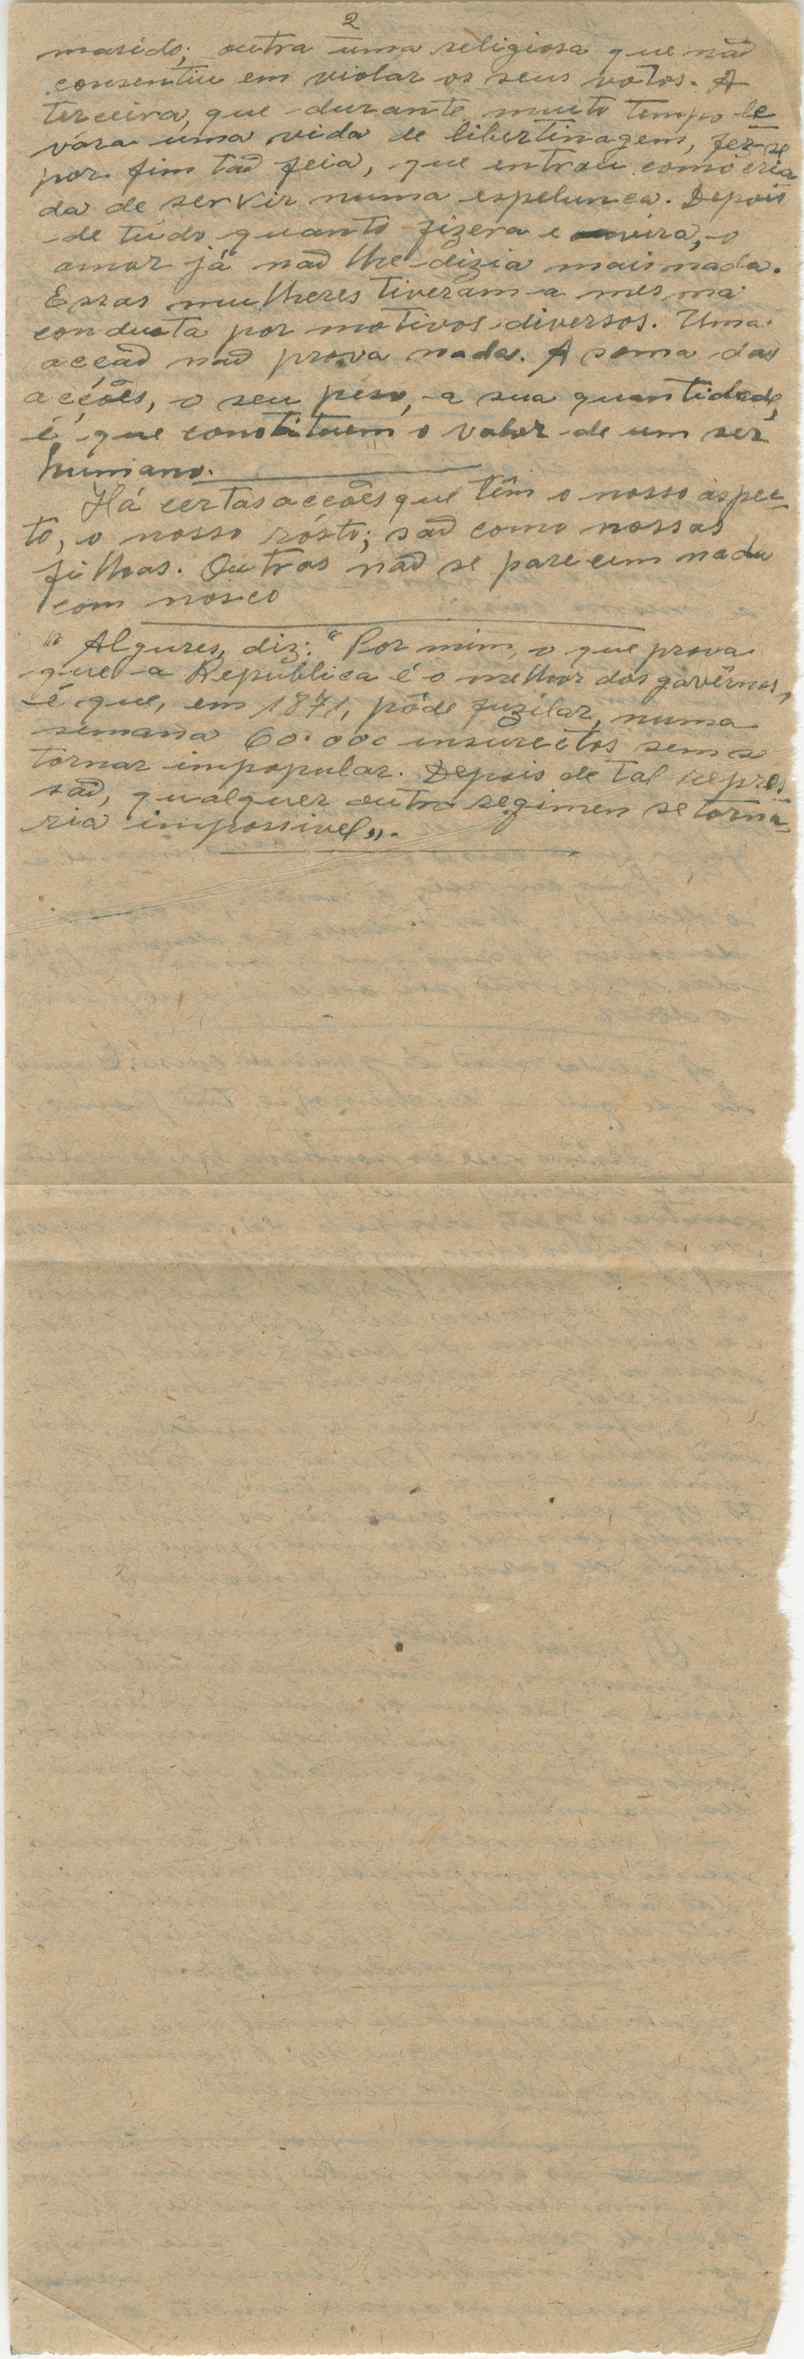 2
marido; outra uma religiosa que não
consentiu em violar os seus votos. A
terceira, que durante muito tempo le
vára uma vida de libertinagem, fez-se
por fim tão feia, que entrou como cria
da de servir numa espelunca. Depois
de tudo quanto fizera e vira, o
amor já não lhe dizia mais nada.
Essas mulheres tiveram a mesma
conducta por motivos diversos. Uma
acção não prova nada. A soma das
acções, o seu peso, a sua quantidade,
é que constituem o valor de um ser
humano.
Há certas acções que têm o nosso aspec-
to, o nosso rôsto; são como nossas
filhas. Outras não se parecem nada
com nosco
" Algures, diz: "Por mim, o que prova
que a República é o melhor dos govêrnos,
é que, em 1871, pôde fuzilar, numa
semana 60.000 insurectos sem se
tornar impopular. Depois de tal repres
são, qualquer outro regimen se torna-
ria impossivel".